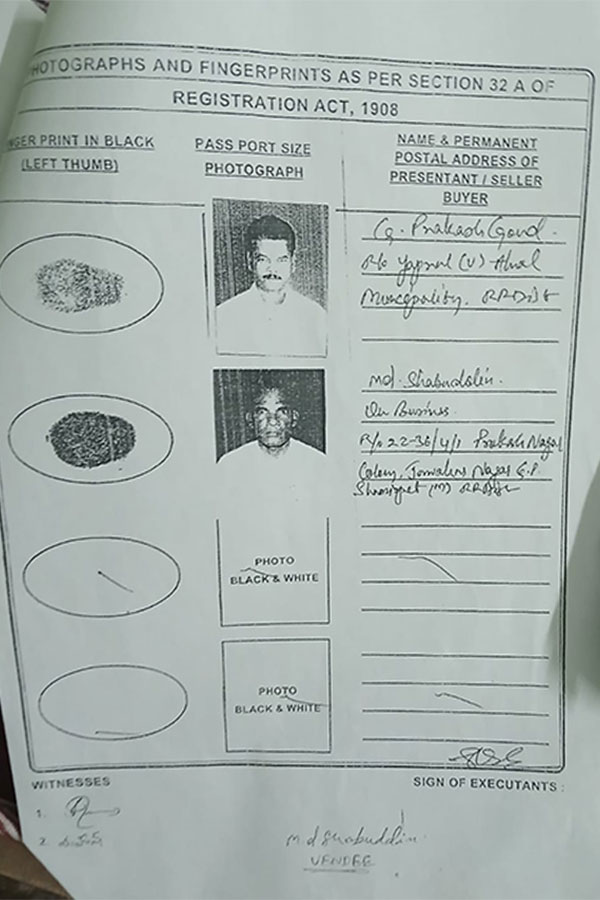 HOTOGRAPHS AND FINGERPRINTS AS PER SECTION 32 A OF
REGISTRATION ACT, 1908
GER PRINT IN BLACK
(LEFT THUMB)
PASS PORT SIZE
PHOTOGRAPH
NAME & PERMANENT
POSTAL ADDRESS OF
PRESENTANT / SELLER
BUYER
G. Prakash Goud.
R/o (V)
RRDist
Md. Shabuddin.
Busines.
R/o 22-36/4/1 Prakash Nagar
Colony, Nagar G.P.
(M) RRDist
PHOTO
BLACK & WHITE
PHOTO
BLACK & WHITE
WITNESSES
SIGN OF EXECUTANTS :
1.
2.
Md Shabuddin
VENDEE